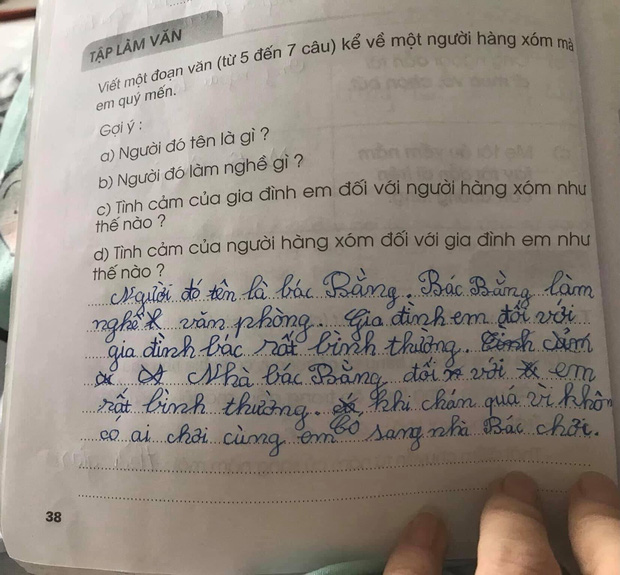 TẬP LÀM VĂN
Viết một đoạn văn (từ 5 đến 7 câu) kể về một người hàng xóm mà
em quý mến.
Gợi ý :
a) Người đó tên là gì ?
b) Người đó làm nghề gì ?
c) Tình cảm của gia đình em đối với người hàng xóm như
thế nào ?
d) Tình cảm của người hàng xóm đối với gia đình em như
thế nào ?
Người đó tên là bác Bằng. Bác Bằng làm
nghề văn phòng. Gia đình em đối với
gia đình bác rất bình thường. Tình cảm
Nhà bác Bằng đối với em
rất bình thường. khi chán quá vì khôn
có ai chơi cùng em sang nhà Bác chơi.
38